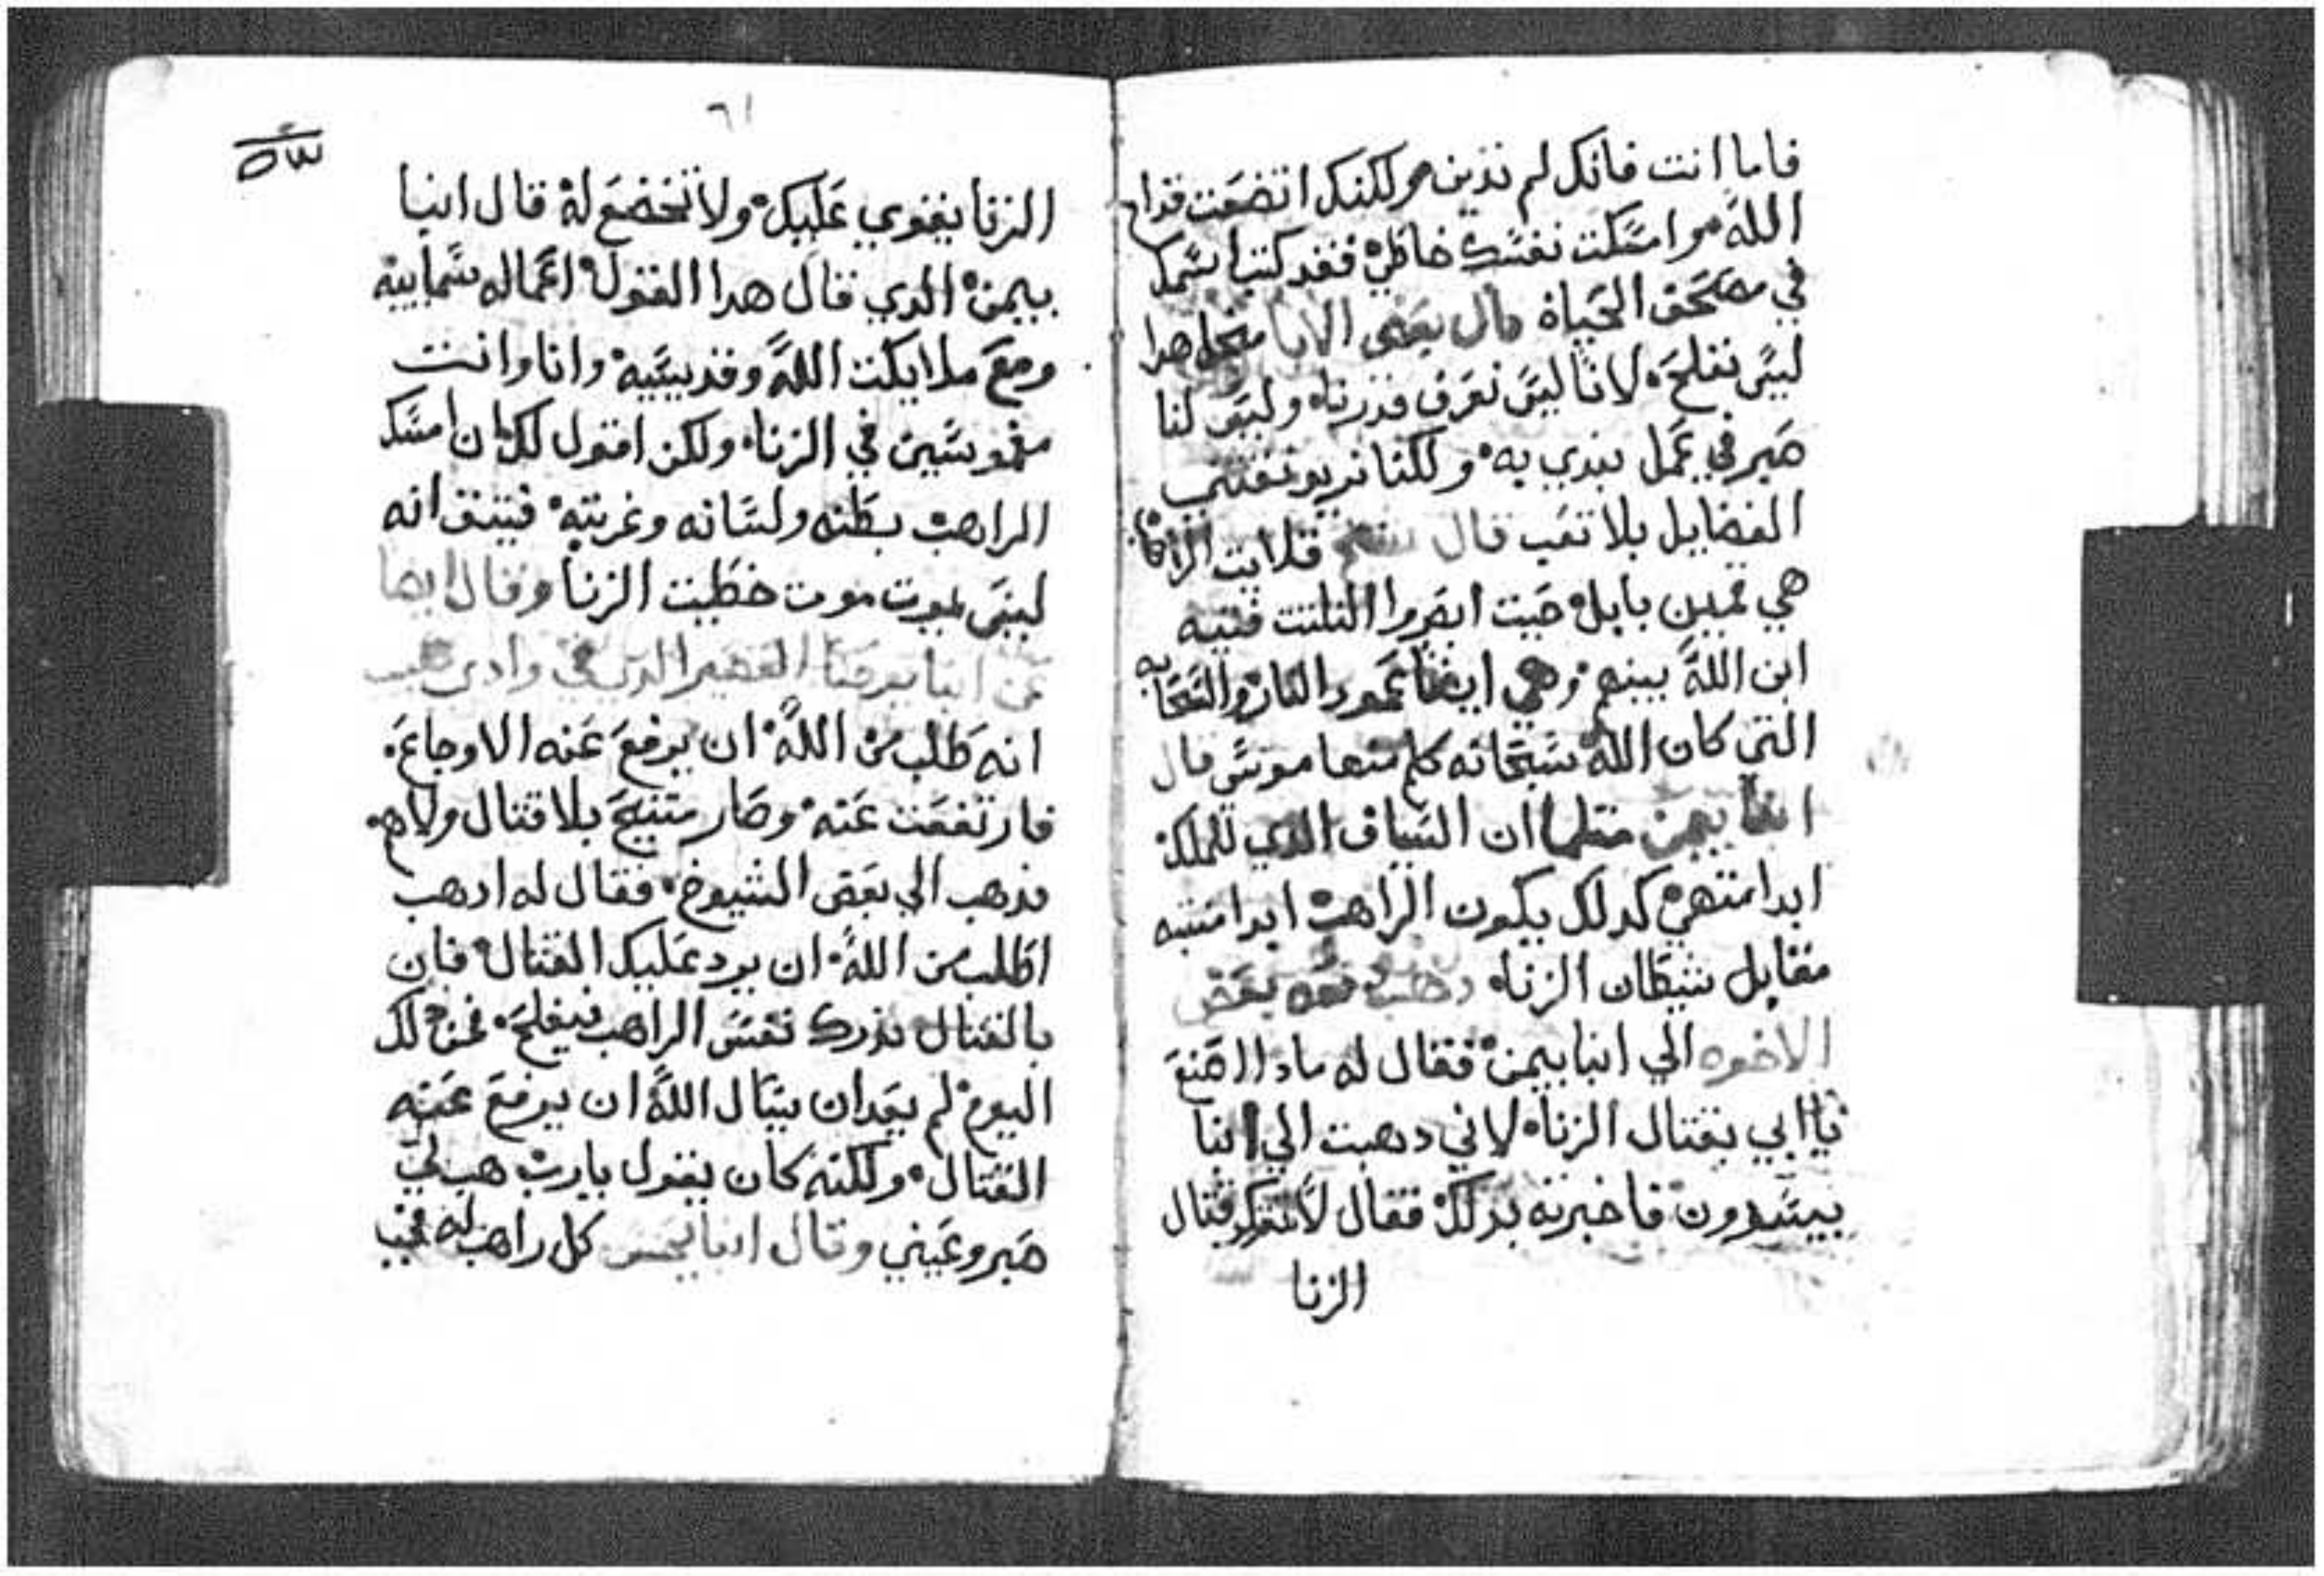 فاما انت فانك لم تدين ولكنك اتضعت قدام
الله وامسكت نفسك خاطي فقد كتب اسمك
في مصحف الحياة قال بعض الابا هدا
ليس نفلح لاننا ليس نعرف قدرنا وليس لنا
صبر في عمل نبدي به ولكننا نريد نقتني
الفضايل بلا تعب قال قلايت الراهب
هي بابل حيت ابصروا التلتت فتيه
ابن الله بينهم وهي ايضا عمود النار والسحابه
التي كان الله سبحانه كلم منها موسي قال
انبا بيمن متلما ان السياف الدي للملك
ابدا متهي كدلك يكون الراهب ابدا متنبه
مقابل شيطان الزنا بعض
الاخوه الي انبا بيمن فقال له مادا اصنع
يا ابي بقتال الزنا لاني دهبت الي انبا
فاخبرته بدلك فقال لا قتال
الزنا
٦١
الزنا يقوي عليك ولا تخضع له قال انبا
بيمن الدي قال هدا القول اعماله سمايية
ومع ملايكت الله وقديسيه وانا وانت
مغموسين في الزنا ولكن اقول لك ان امسك
الراهب بطنه ولسانه وغربته فيتق انه
ليس يموت موت خطيت الزنا وقال ايضا
عن انبا القصير الدي في وادي
انه طلب من الله ان يرفع عنه الاوجاع
فارتفعت عنه وصار متنيح بلا قتال ولا هم
فدهب الي بعض الشيوخ فقال له ادهب
اطلب من الله ان يرد عليك القتال فان
بالقتال نفس الراهب فيفلح فمن دلك
اليوم لم يعد ان يسال الله ان يرفع عنه
القتال ولكنه كان يقول يارب هب لي
صبر وعيني وقال انبا كل راهب له